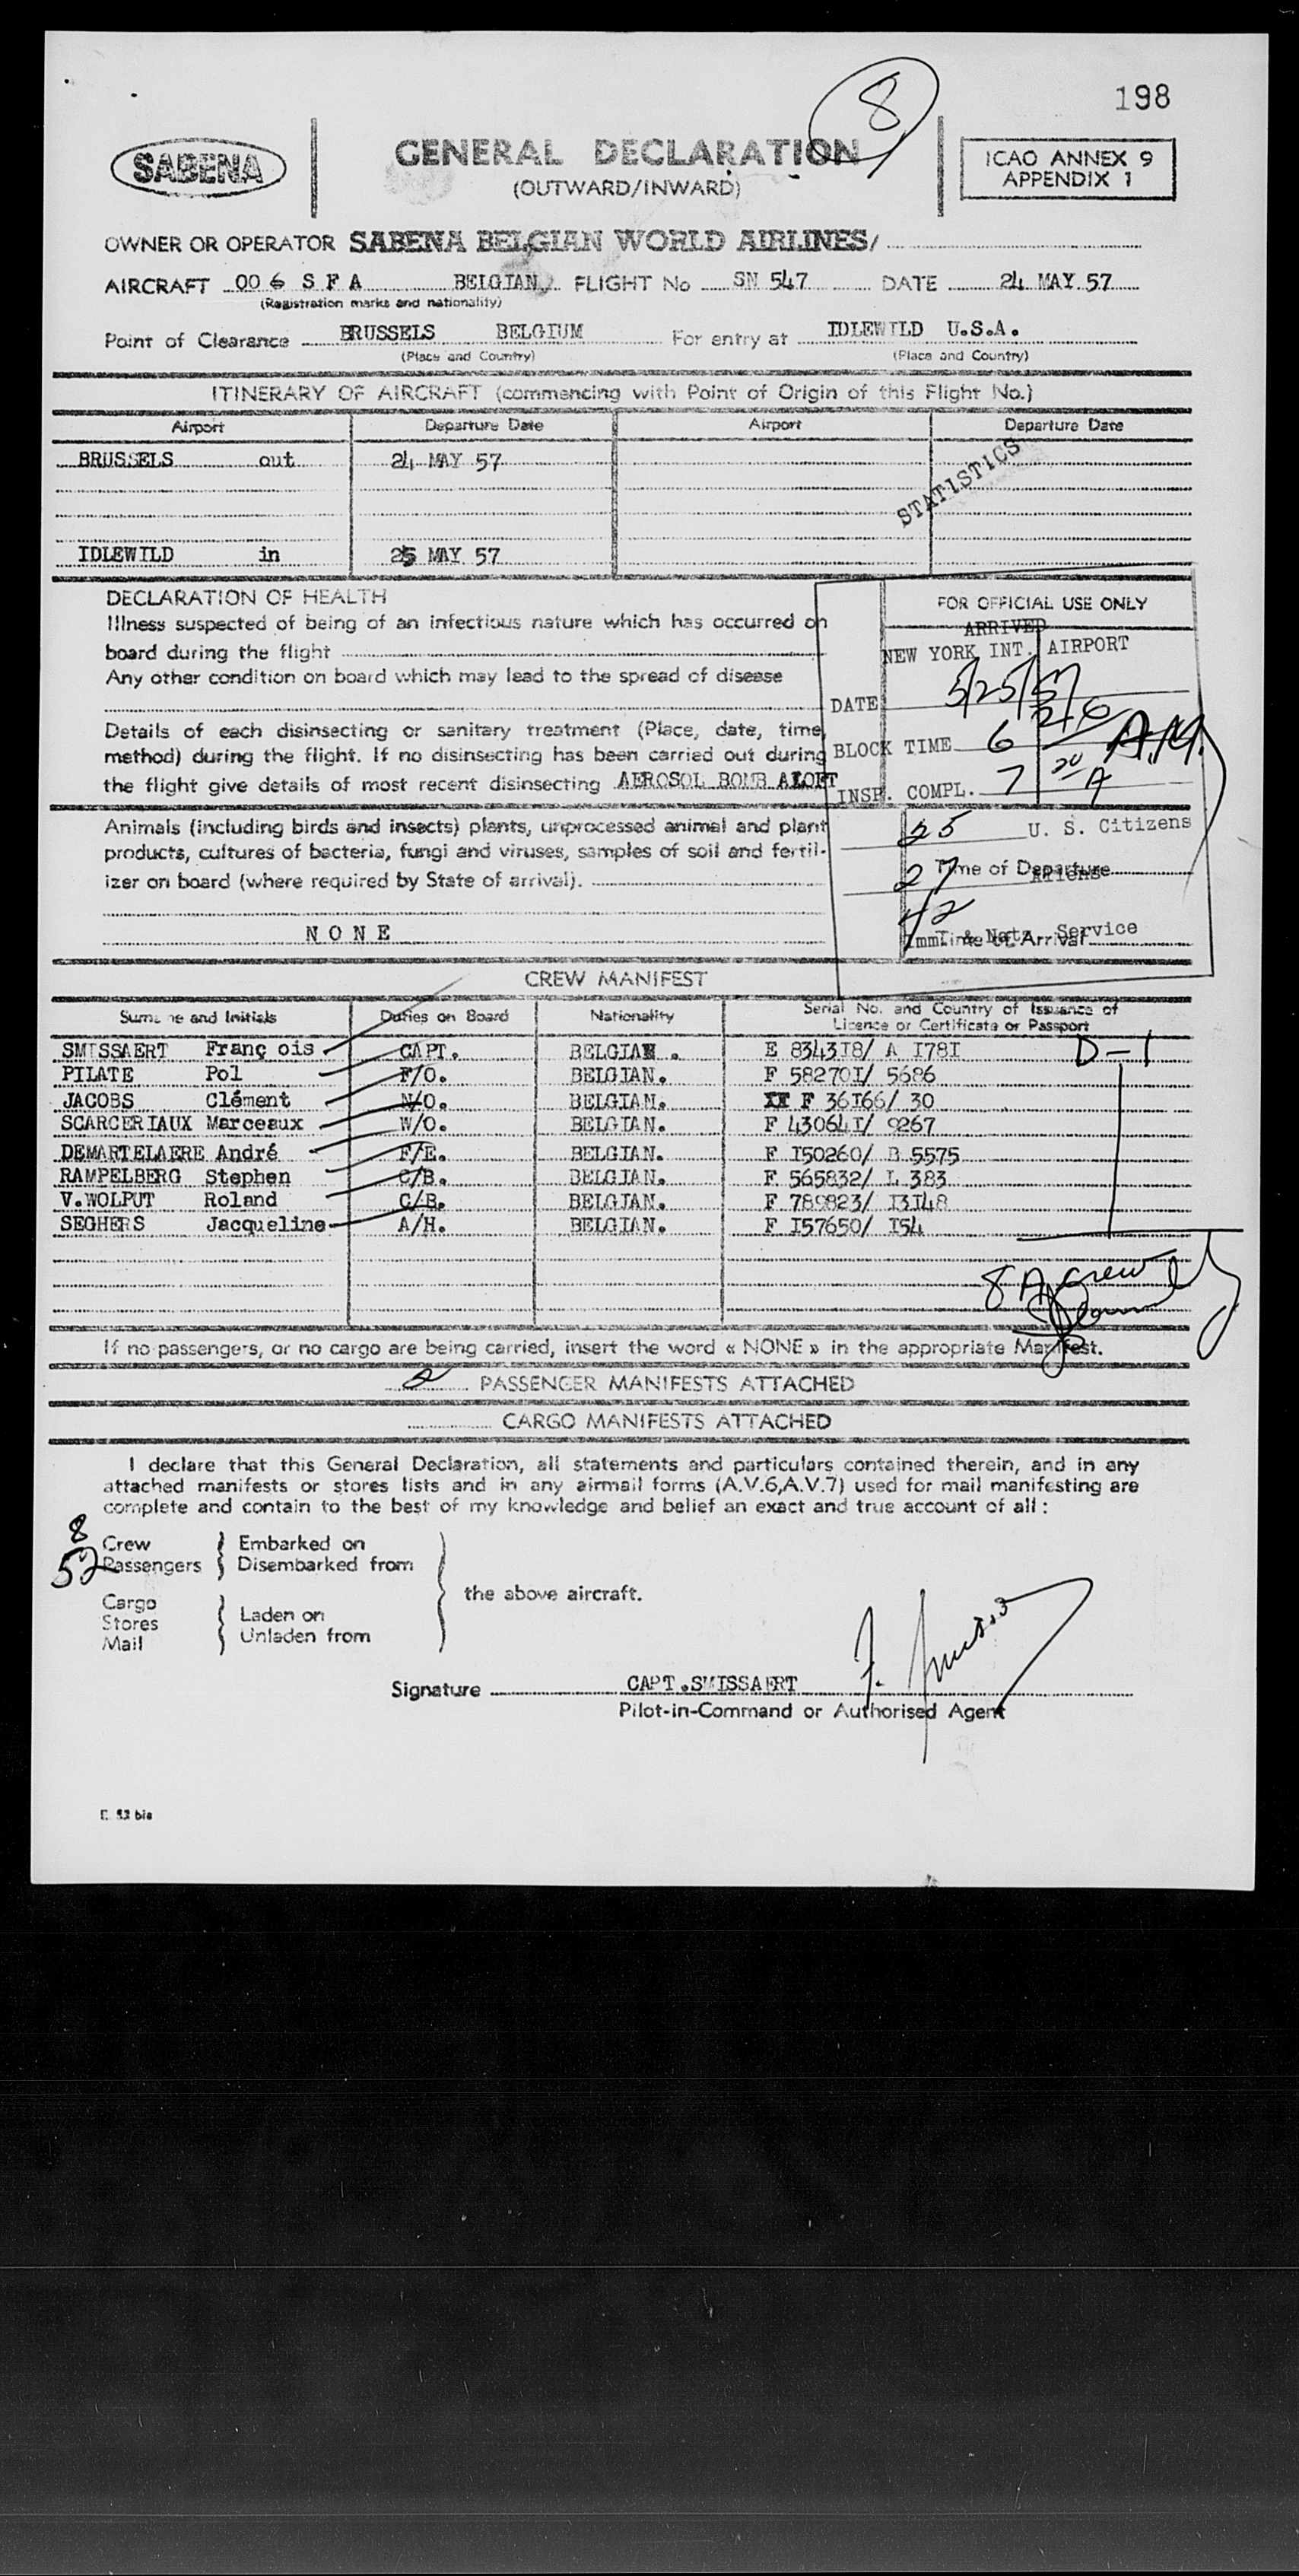 198
8
SABENA
GENERAL DECLARATION
(OUTWARD/INWARD)
ICAO ANNEX 9
APPENDIX 1
OWNER OR OPERATOR SABENA BELGIAN WORLD AIRLINES/
AIRCRAFT OO S F A BELGIAN FLIGHT No SN 547 DATE 24 MAY 57
(Registration marks and nationality)
Point of Clearance BRUSSELS BELGIUM For entry at IDLEWILD U.S.A.
(Place and Country) (Place and Country)
ITINERARY OF AIRCRAFT (commencing with Point of Origin of this Flight No.)
Airport Departure Date Airport Departure Date
BRUSSELS out 24 MAY 57
STATISTICS
IDLEWILD in 25 MAY 57
DECLARATION OF HEALTH
Illness suspected of being of an infectious nature which has occurred on
board during the flight
Any other condition on board which may lead to the spread of disease
Details of each disinsecting or sanitary treatment (Place, date, time,
method) during the flight. If no disinsecting has been carried out during
the flight give details of most recent disinsecting AEROSOL BOMB ALOFT
Animals (including birds and insects) plants, unprocessed animal and plant
products, cultures of bacteria, fungi and viruses, samples of soil and fertil-
izer on board (where required by State of arrival).
NONE
FOR OFFICIAL USE ONLY
ARRIVED
NEW YORK INT. AIRPORT
DATE 5/25/57
BLOCK TIME 6 26 A.M.
INSP. COMPL. 7 20 A
25 U. S. Citizens
Time of Departure
27 Aliens
Time of Arrival
Imm. & Natz. Service
CREW MANIFEST
Surname and Initials Duties on Board Nationality Serial No. and Country of Issuance of
Licence or Certificate or Passport
SMISSAERT Franç ois CAPT. BELGIAN. E 834318/ A I78I D-1
PILATE Pol F/O. BELGIAN. F 58270I/ 5686
JACOBS Clément N/O. BELGIAN. XX F 36I66/ 30
SCARCERIAUX Marceaux W/O. BELGIAN. F 43064I/ 9267
DEMARTELAERE André F/E. BELGIAN. F I50260/ B 5575
RAMPELBERG Stephen C/B. BELGIAN. F 565832/ L 383
V.WOLPUT Roland C/B. BELGIAN. F 789823/ I3I48
SEGHERS Jacqueline A/H. BELGIAN. F I57650/ I54
8 A Crew
If no passengers, or no cargo are being carried, insert the word « NONE » in the appropriate Manifest.
2 PASSENGER MANIFESTS ATTACHED
CARGO MANIFESTS ATTACHED
I declare that this General Declaration, all statements and particulars contained therein, and in any
attached manifests or stores lists and in any airmail forms (A.V.6,A.V.7) used for mail manifesting are
complete and contain to the best of my knowledge and belief an exact and true account of all :
8 Crew Embarked on
52 Passengers Disembarked from
the above aircraft.
Cargo
Stores Laden on
Mail Unladen from
Signature CAPT.SMISSAERT
Pilot-in-Command or Authorised Agent
E. 53 bis